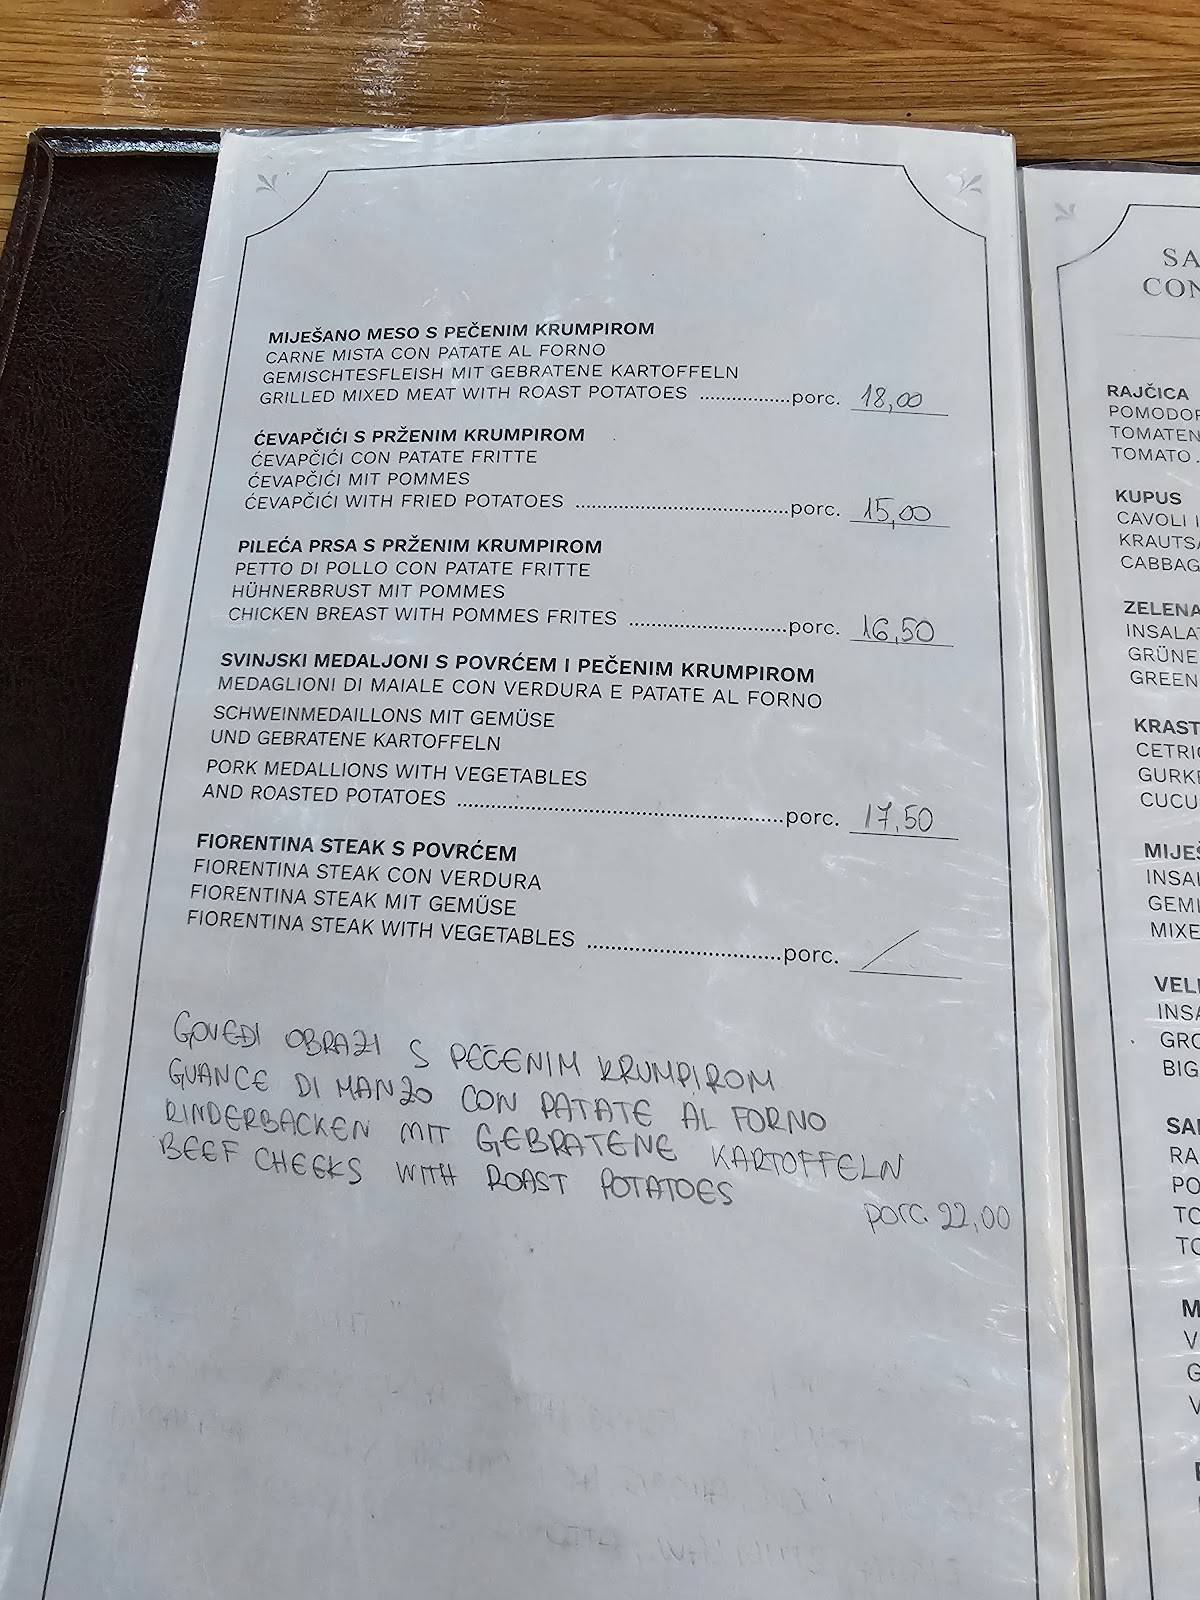 MIJEŠANO MESO S PEČENIM KRUMPIROM
CARNE MISTA CON PATATE AL FORNO
GEMISCHTESFLEISH MIT GEBRATENE KARTOFFELN
GRILLED MIXED MEAT WITH ROAST POTATOES ................porc. 18,00
ĆEVAPČIĆI S PRŽENIM KRUMPIROM
ĆEVAPČIĆI CON PATATE FRITTE
ĆEVAPČIĆI MIT POMMES
ĆEVAPČIĆI WITH FRIED POTATOES ......................................porc. 15,00
PILEĆA PRSA S PRŽENIM KRUMPIROM
PETTO DI POLLO CON PATATE FRITTE
HÜHNERBRUST MIT POMMES
CHICKEN BREAST WITH POMMES FRITES ............................porc. 16,50
SVINJSKI MEDALJONI S POVRĆEM I PEČENIM KRUMPIROM
MEDAGLIONI DI MAIALE CON VERDURA E PATATE AL FORNO
SCHWEINMEDAILLONS MIT GEMÜSE
UND GEBRATENE KARTOFFELN
PORK MEDALLIONS WITH VEGETABLES
AND ROASTED POTATOES ......................................................porc. 17,50
FIORENTINA STEAK S POVRĆEM
FIORENTINA STEAK CON VERDURA
FIORENTINA STEAK MIT GEMÜSE
FIORENTINA STEAK WITH VEGETABLES ................................porc. /
GOVEĐI OBRAZI S PEČENIM KRUMPIROM
GUANCE DI MANZO CON PATATE AL FORNO
RINDERBACKEN MIT GEBRATENE KARTOFFELN
BEEF CHEEKS WITH ROAST POTATOES
porc. 22,00
SA
CON
RAJČICA
POMODOR
TOMATEN
TOMATO .
KUPUS
CAVOLI
KRAUTSA
CABBAG
ZELENA
INSALA
GRÜNE
GREEN
KRAST
CETRIO
GURKE
CUCU
MIJEŠ
INSAL
GEMI
MIXE
VELI
INSA
GRO
BIG
SAL
RA
PO
TO
TO
M
V
G
V